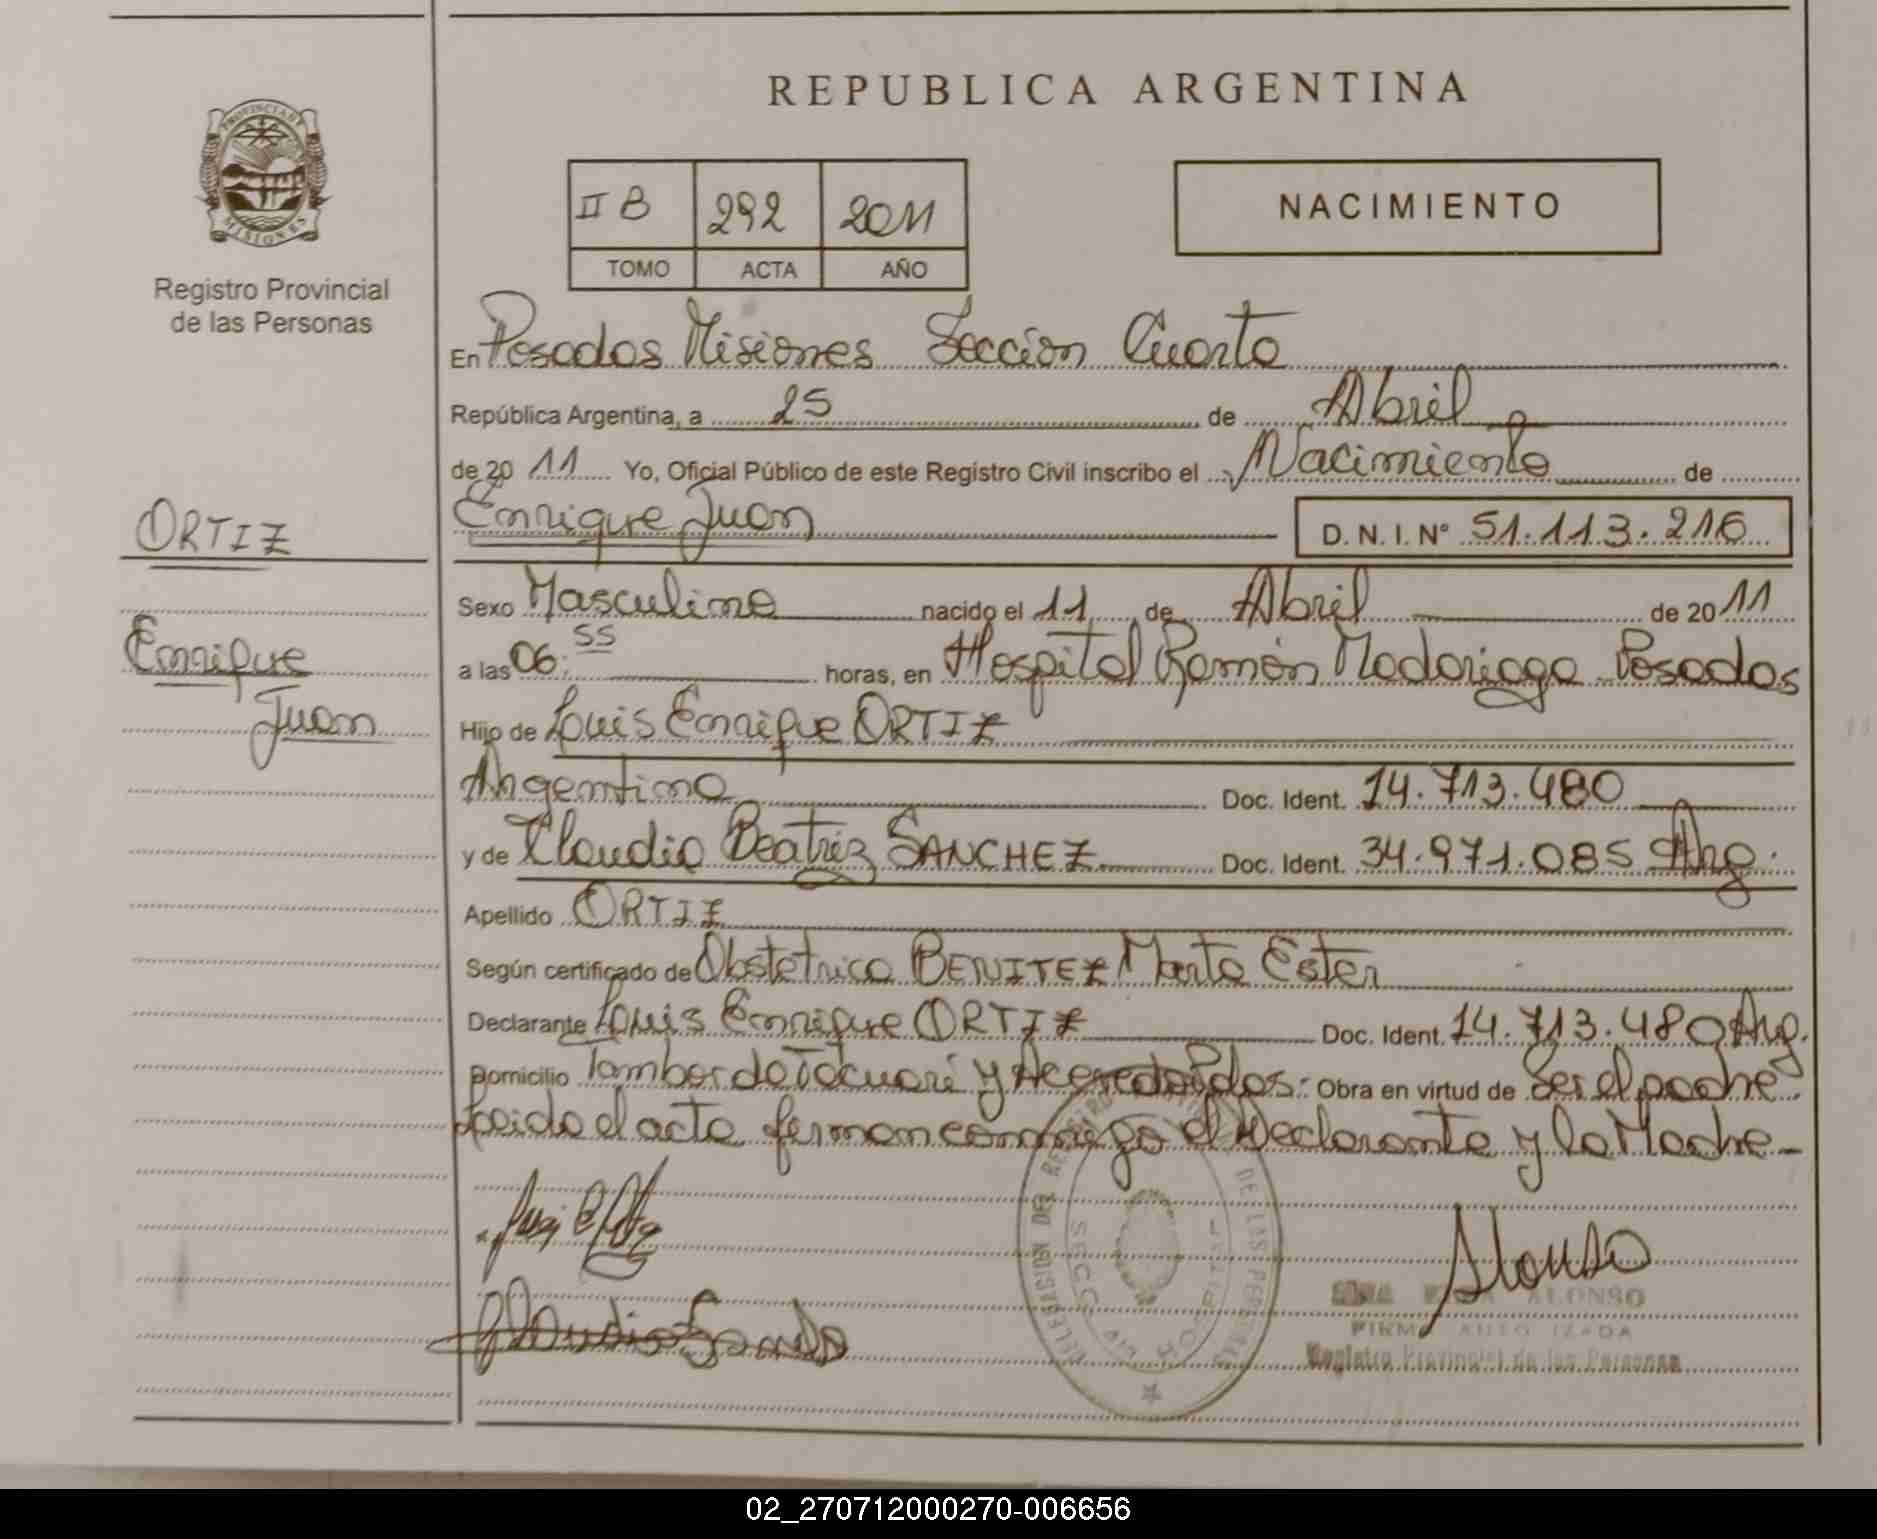 REPUBLICA ARGENTINA
PROVINCIA DE
MISIONES
Registro Provincial
de las Personas
II B 292 2011
TOMO ACTA AÑO
NACIMIENTO
En Posadas Misiones Sección Cuarta
República Argentina, a 25 de Abril
de 2011 Yo, Oficial Público de este Registro Civil inscribo el Nacimiento de
Enrique Juan D. N. I. Nº 51.113.216
ORTIZ
Enrique
Juan
Sexo Masculino nacido el 11 de Abril de 2011
a las 06:55 horas, en Hospital Ramón Madariaga Posadas
Hijo de Luis Enrique ORTIZ
Argentino Doc. Ident. 14.713.480
y de Claudia Beatriz SANCHEZ Doc. Ident. 34.971.085 Arg.
Apellido ORTIZ
Según certificado de Obstetrica BENITEZ Marta Ester
Declarante Luis Enrique ORTIZ Doc. Ident. 14.713.480 Arg.
Domicilio Tambor de Tacuari y Acevedo Pdas. Obra en virtud de Ser el padre
Leida el acta firman conmigo el Declarante y la Madre
DELEGACION DEL REGISTRO DE LAS PERSONAS
HOSPITAL
Alonso
ALONSO
Registro Provincial de las Personas
02_270712000270-006656